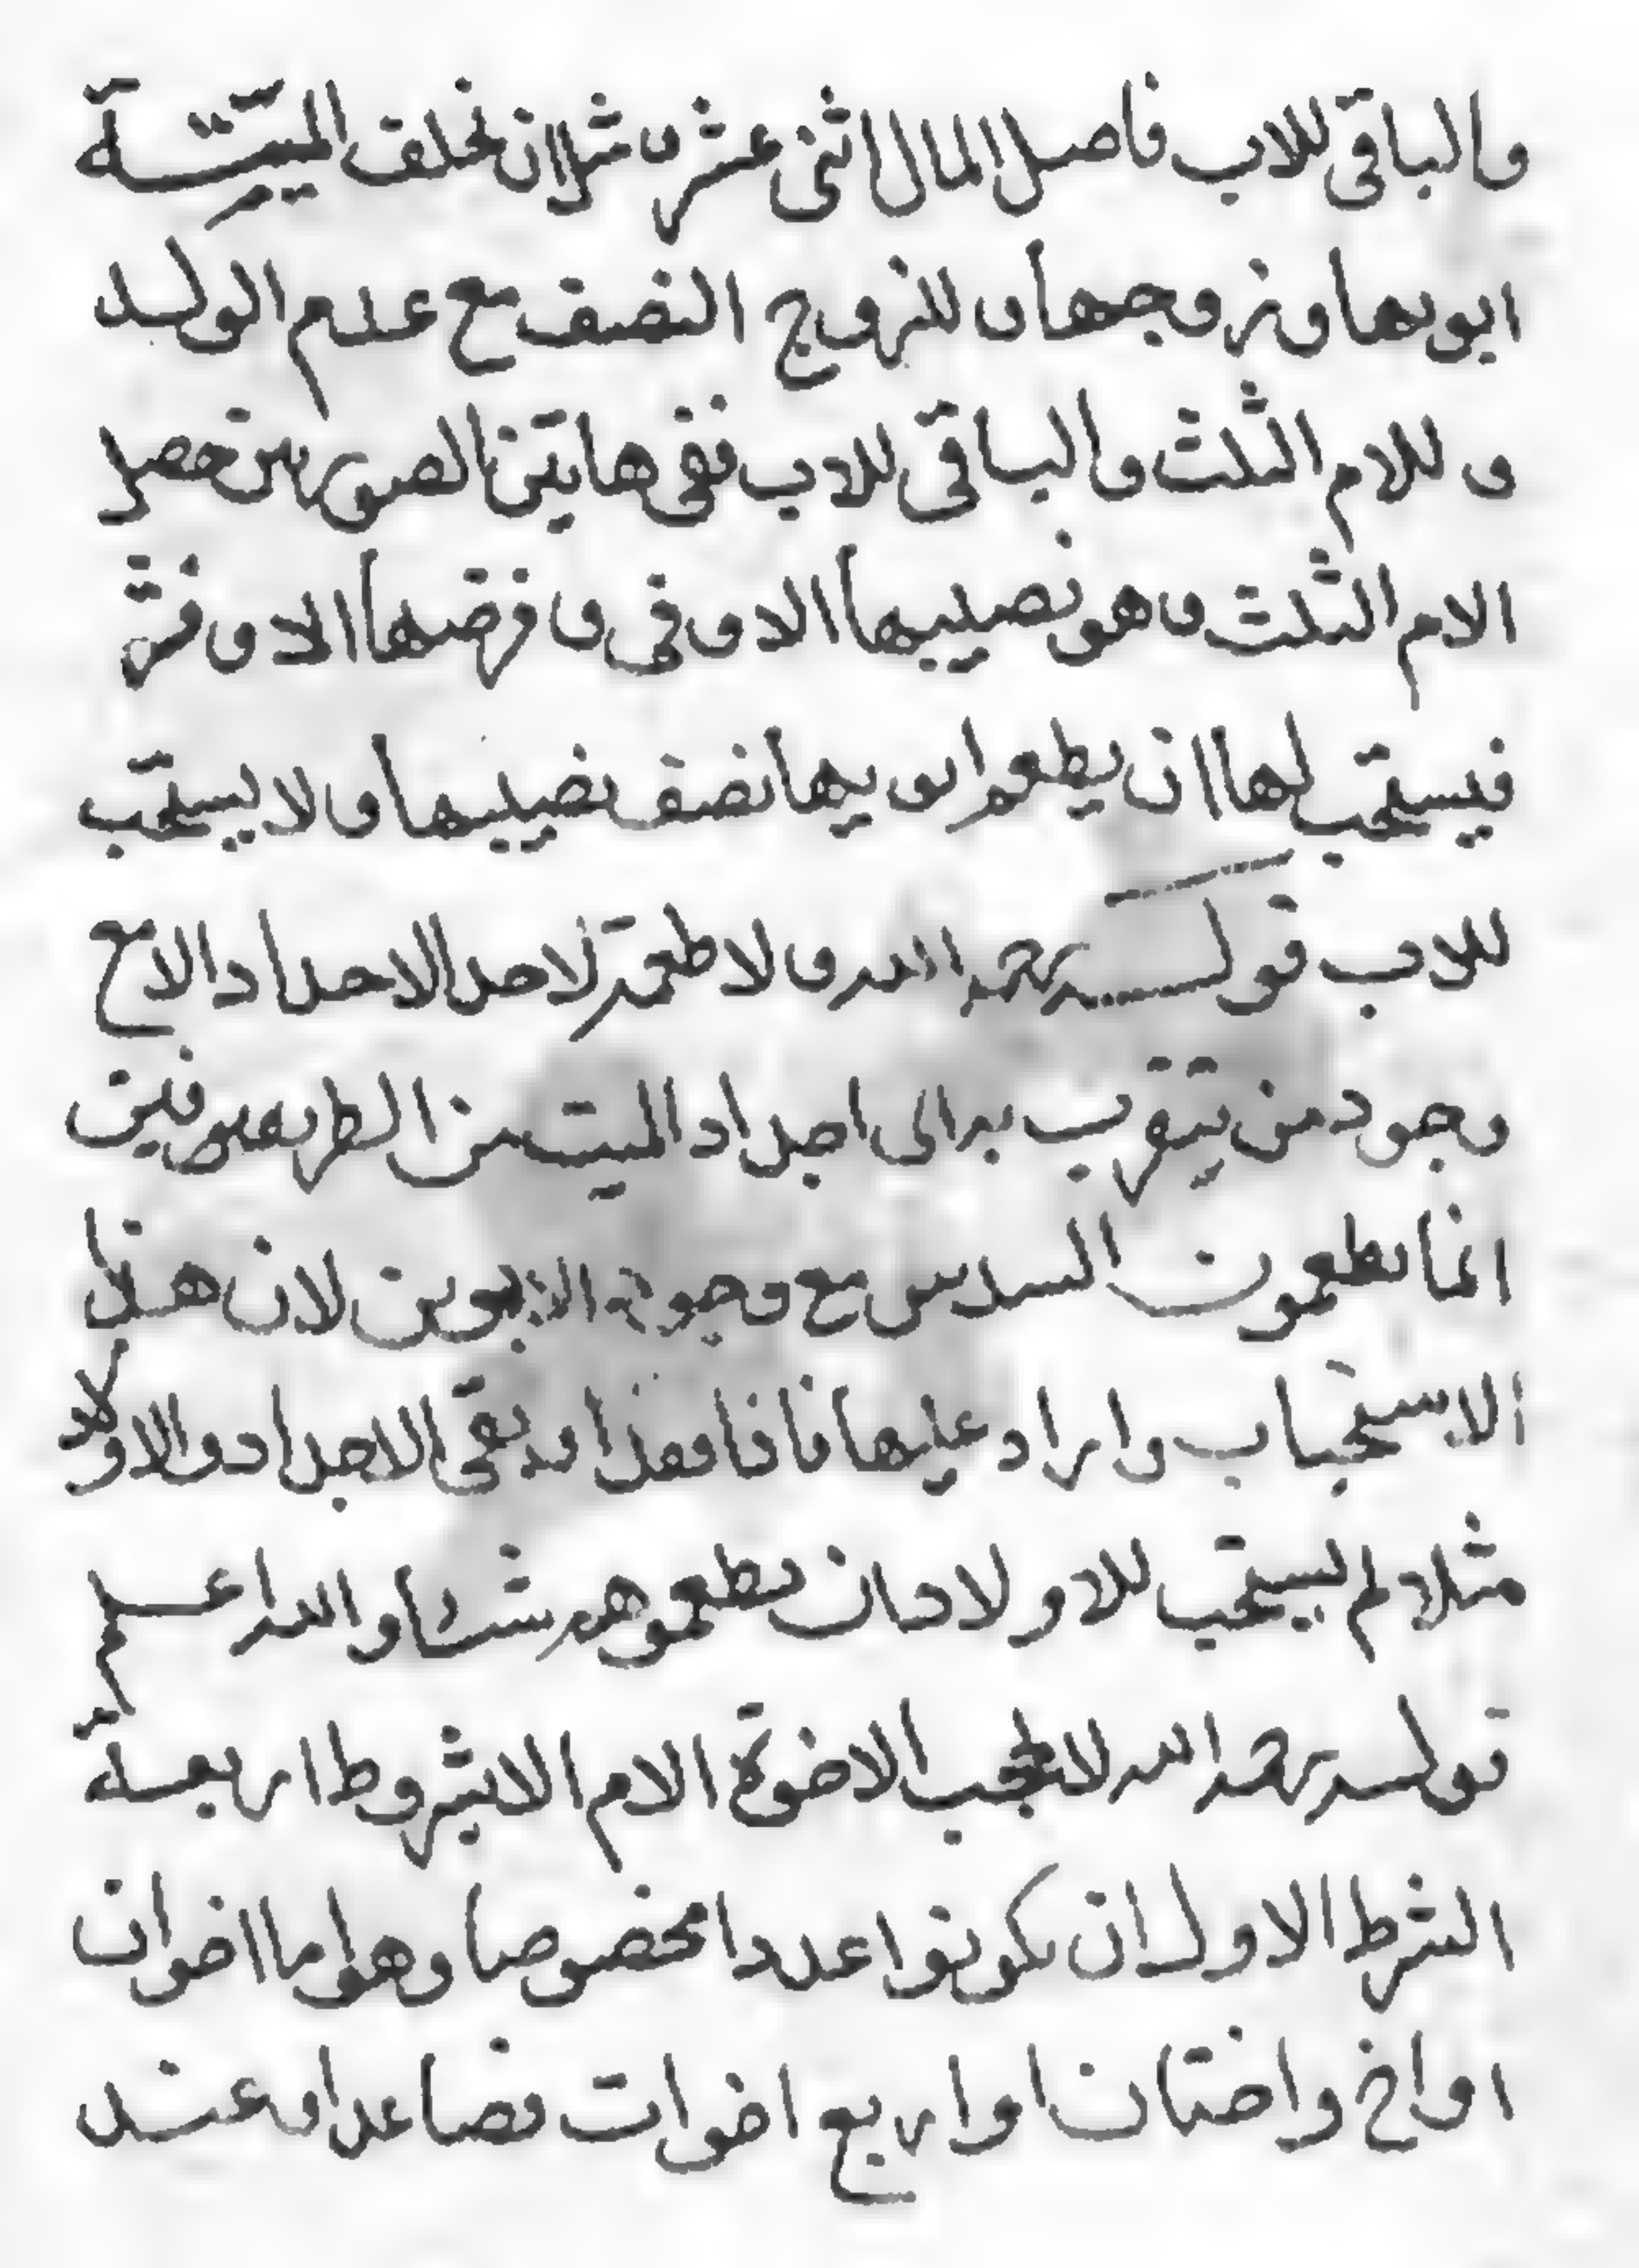 والباقى للاب فاصل المال اثنى عشر و مثل ان تخلف الميتة
ابويها و زوجها و للزوج النصف مع عدم الولد
و للام الثلث والباقى للاب ففى هاتين الصورتين حصل
الام الثلث و هو نصيبها الاوفى و فرضها الاوفر
فيستحب لها ان يطعم ابويها نصف نصيبها و لا يستحب
للاب قوله رحمه الله و لا طعمة لاحد الاجداد الا مع
وجود من يتقرب به الى اجداد الميت من الطرفين
انما يطعمون السدس مع وجود الابوين لان هذا
الاستحباب وارد عليها فاذا فقدا و بقى الاجداد والاولاد
مثلا لم يستحب للاولاد ان يطعموهم شيئا والله اعلم
قوله رحمه الله لا تحجب الاخوة الام الا بشروط اربعة
الشرط الاول ان يكونوا عددا مخصوصا وهو اما اخوان
او اخ واختان او اربع اخوات فصاعدا و عند